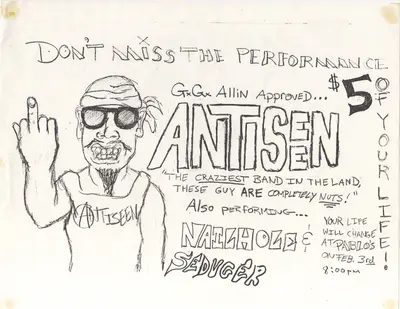 DON'T MISS THE PERFORMANCE
OF YOUR LIFE!
$5
G.G. Allin Approved...
ANTISEEN
"THE CRAZIEST BAND IN THE LAND,
THESE GUY ARE COMPLETELY NUTS!"
Also performing...
NAILHOLE &
SEDUCER
YOUR LIFE
WILL CHANGE
AT PABLO'S
ON FEB. 3rd
8:00pm
ANTISEEN